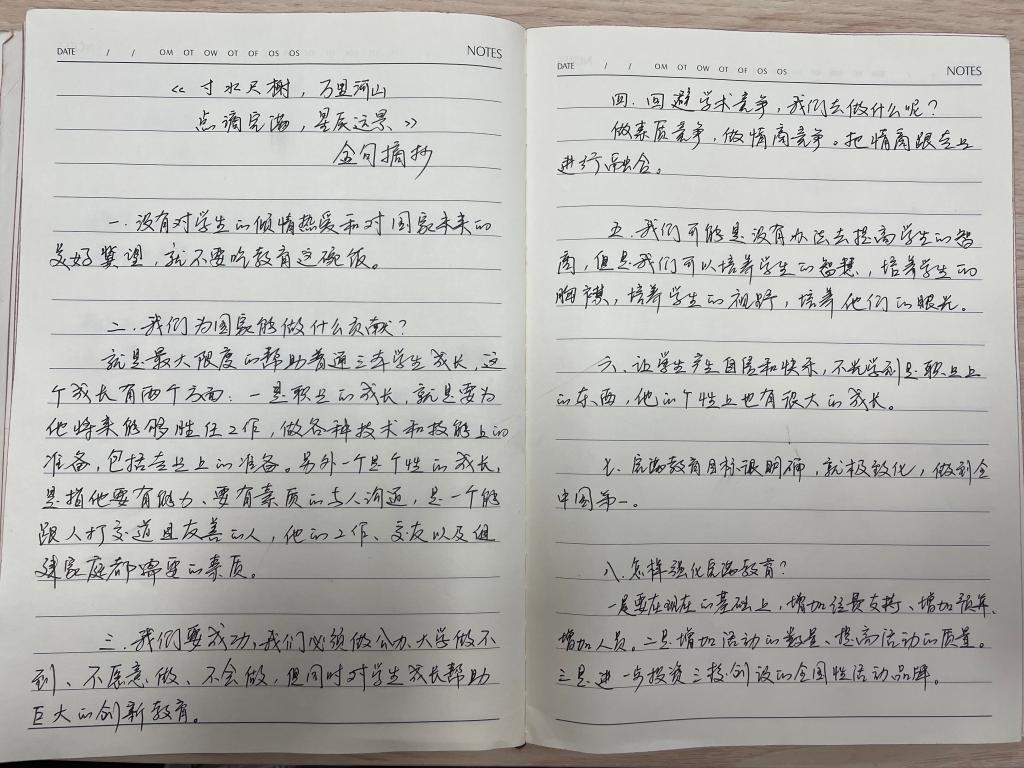 DATE / / OM OT OW OT OF OS OS NOTES
《寸水尺榭，万里河山
点滴完满，星辰远景》
金句摘抄
一．没有对学生的倾情热爱和对国家未来的
美好冀望，就不要吃教育这碗饭。
二．我们为国家能做什么贡献？
就是最大限度的帮助普通三本学生成长，这
个成长有两个方面：一是职业的成长，就是要为
他将来能够胜任工作，做各种技术和技能上的
准备，包括专业上的准备。另外一个是个性的成长，
是指他要有能力、要有素质的与人沟通，是一个能
跟人打交道且友善的人，他的工作、交友以及组
建家庭都需要的素质。
三．我们要成功，我们必须做公办大学做不
到、不愿意做、不会做，但同时对学生成长帮助
巨大的创新教育。
DATE / / OM OT OW OT OF OS OS NOTES
四．回避学术竞争，我们去做什么呢？
做素质竞争，做情商竞争。把情商跟专业
进行融合。
五．我们可能是没有办法去提高学生的智
商，但是我们可以培养学生的智慧，培养学生的
胸襟，培养学生的视野，培养他们的眼光。
六．让学生产生自信和快乐，不光学到是职业上
的东西，他的个性上也有很大的成长。
七．完满教育目标很明确，就极致化，做到全
中国第一。
八．怎样强化完满教育？
一是要在现在的基础上，增加经费支持、增加预算、
增加人员。二是增加活动的数量、提高活动的质量。
三是进一步投资三技创设的全国性活动品牌。